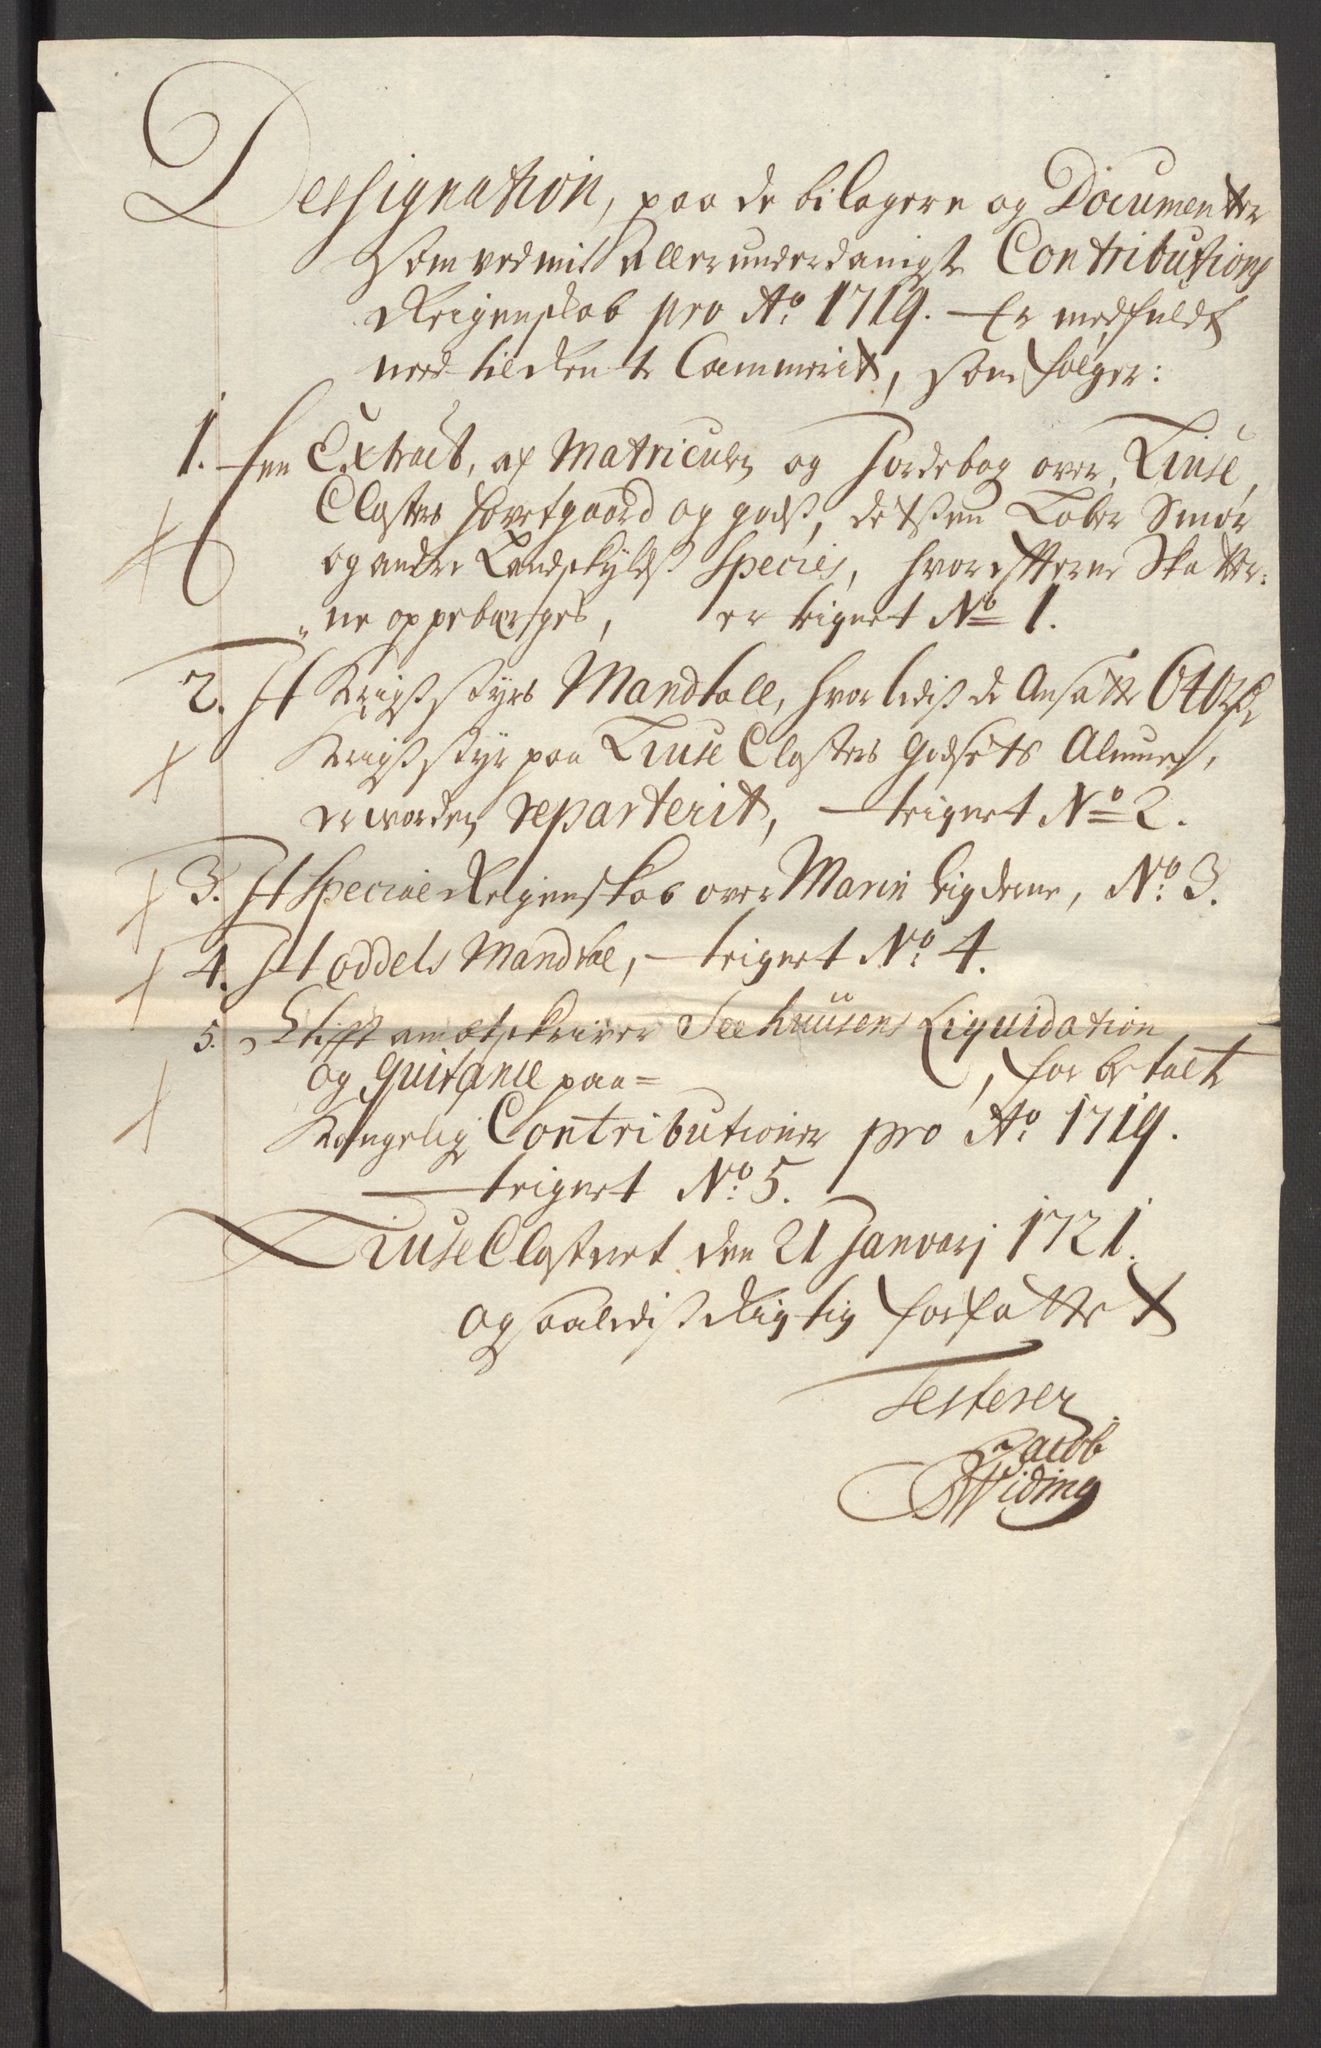 Dessignation, paa de bilagere og Documenter
som ved mit Allerunderdanigste Contributions
Reigenskab pro Ao. 1719. Er medfuldt
need til Rente Cammerit, som følger:
1. Een Extract, af Matriculen og Jordebog over, Liuse
Closters Hovetgaard og gods, detsen Løber Smør
og andre Landskylds Species, hvor efterne Skatter:
ne oppebærges, er teignet No 1.
2. It Krigsstyrs Mandtall, hvorledis de Ansatte
Krigsstyr paa Liuse Closters Godsets Almue,
er worden reparterit, teignet No 2.
3. It Special Reigenskab over Marin No. 3.
4. It oddels Mandtal, teignet No. 4.
5. Stifftamtskriver Seehuusens Liquidation
og quitance paa= , for betalt
Kongelig Contributioner pro Ao. 1719.
teignet No. 5.
Liuse Closteret den 21 Januarj 1721.
og saaledis Rigtig forfattet
Testerer
Jacob
Widing